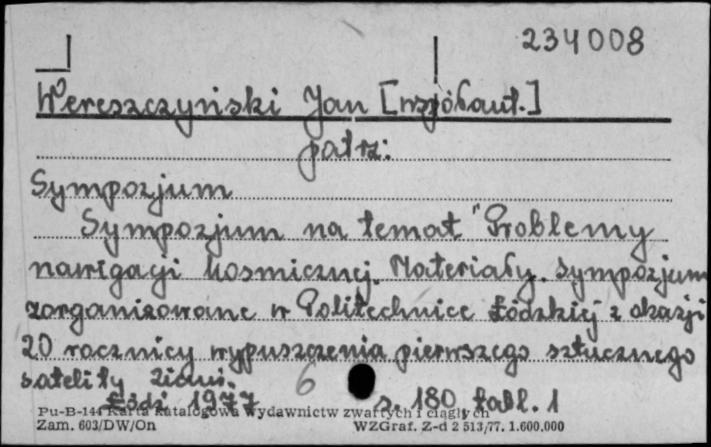 234008
Wereszczyński Jan [współaut.]
patrz:
Sympozjum
Sympozjum na temat "Problemy
nawigacji kosmicznej. Materiały. Sympozjum
zorganizowane w Politechnice Łódzkiej z okazji
20 rocznicy wypuszczenia pierwszego sztucznego
satelity Ziemi. 6
Łódź 1977 s. 180 tabl. 1
Pu-B-144 Karta katalogowa wydawnictw zwartych i ciągłych
Zam. 603/DW/On WZGraf. Z-d 2 513/77. 1.600.000